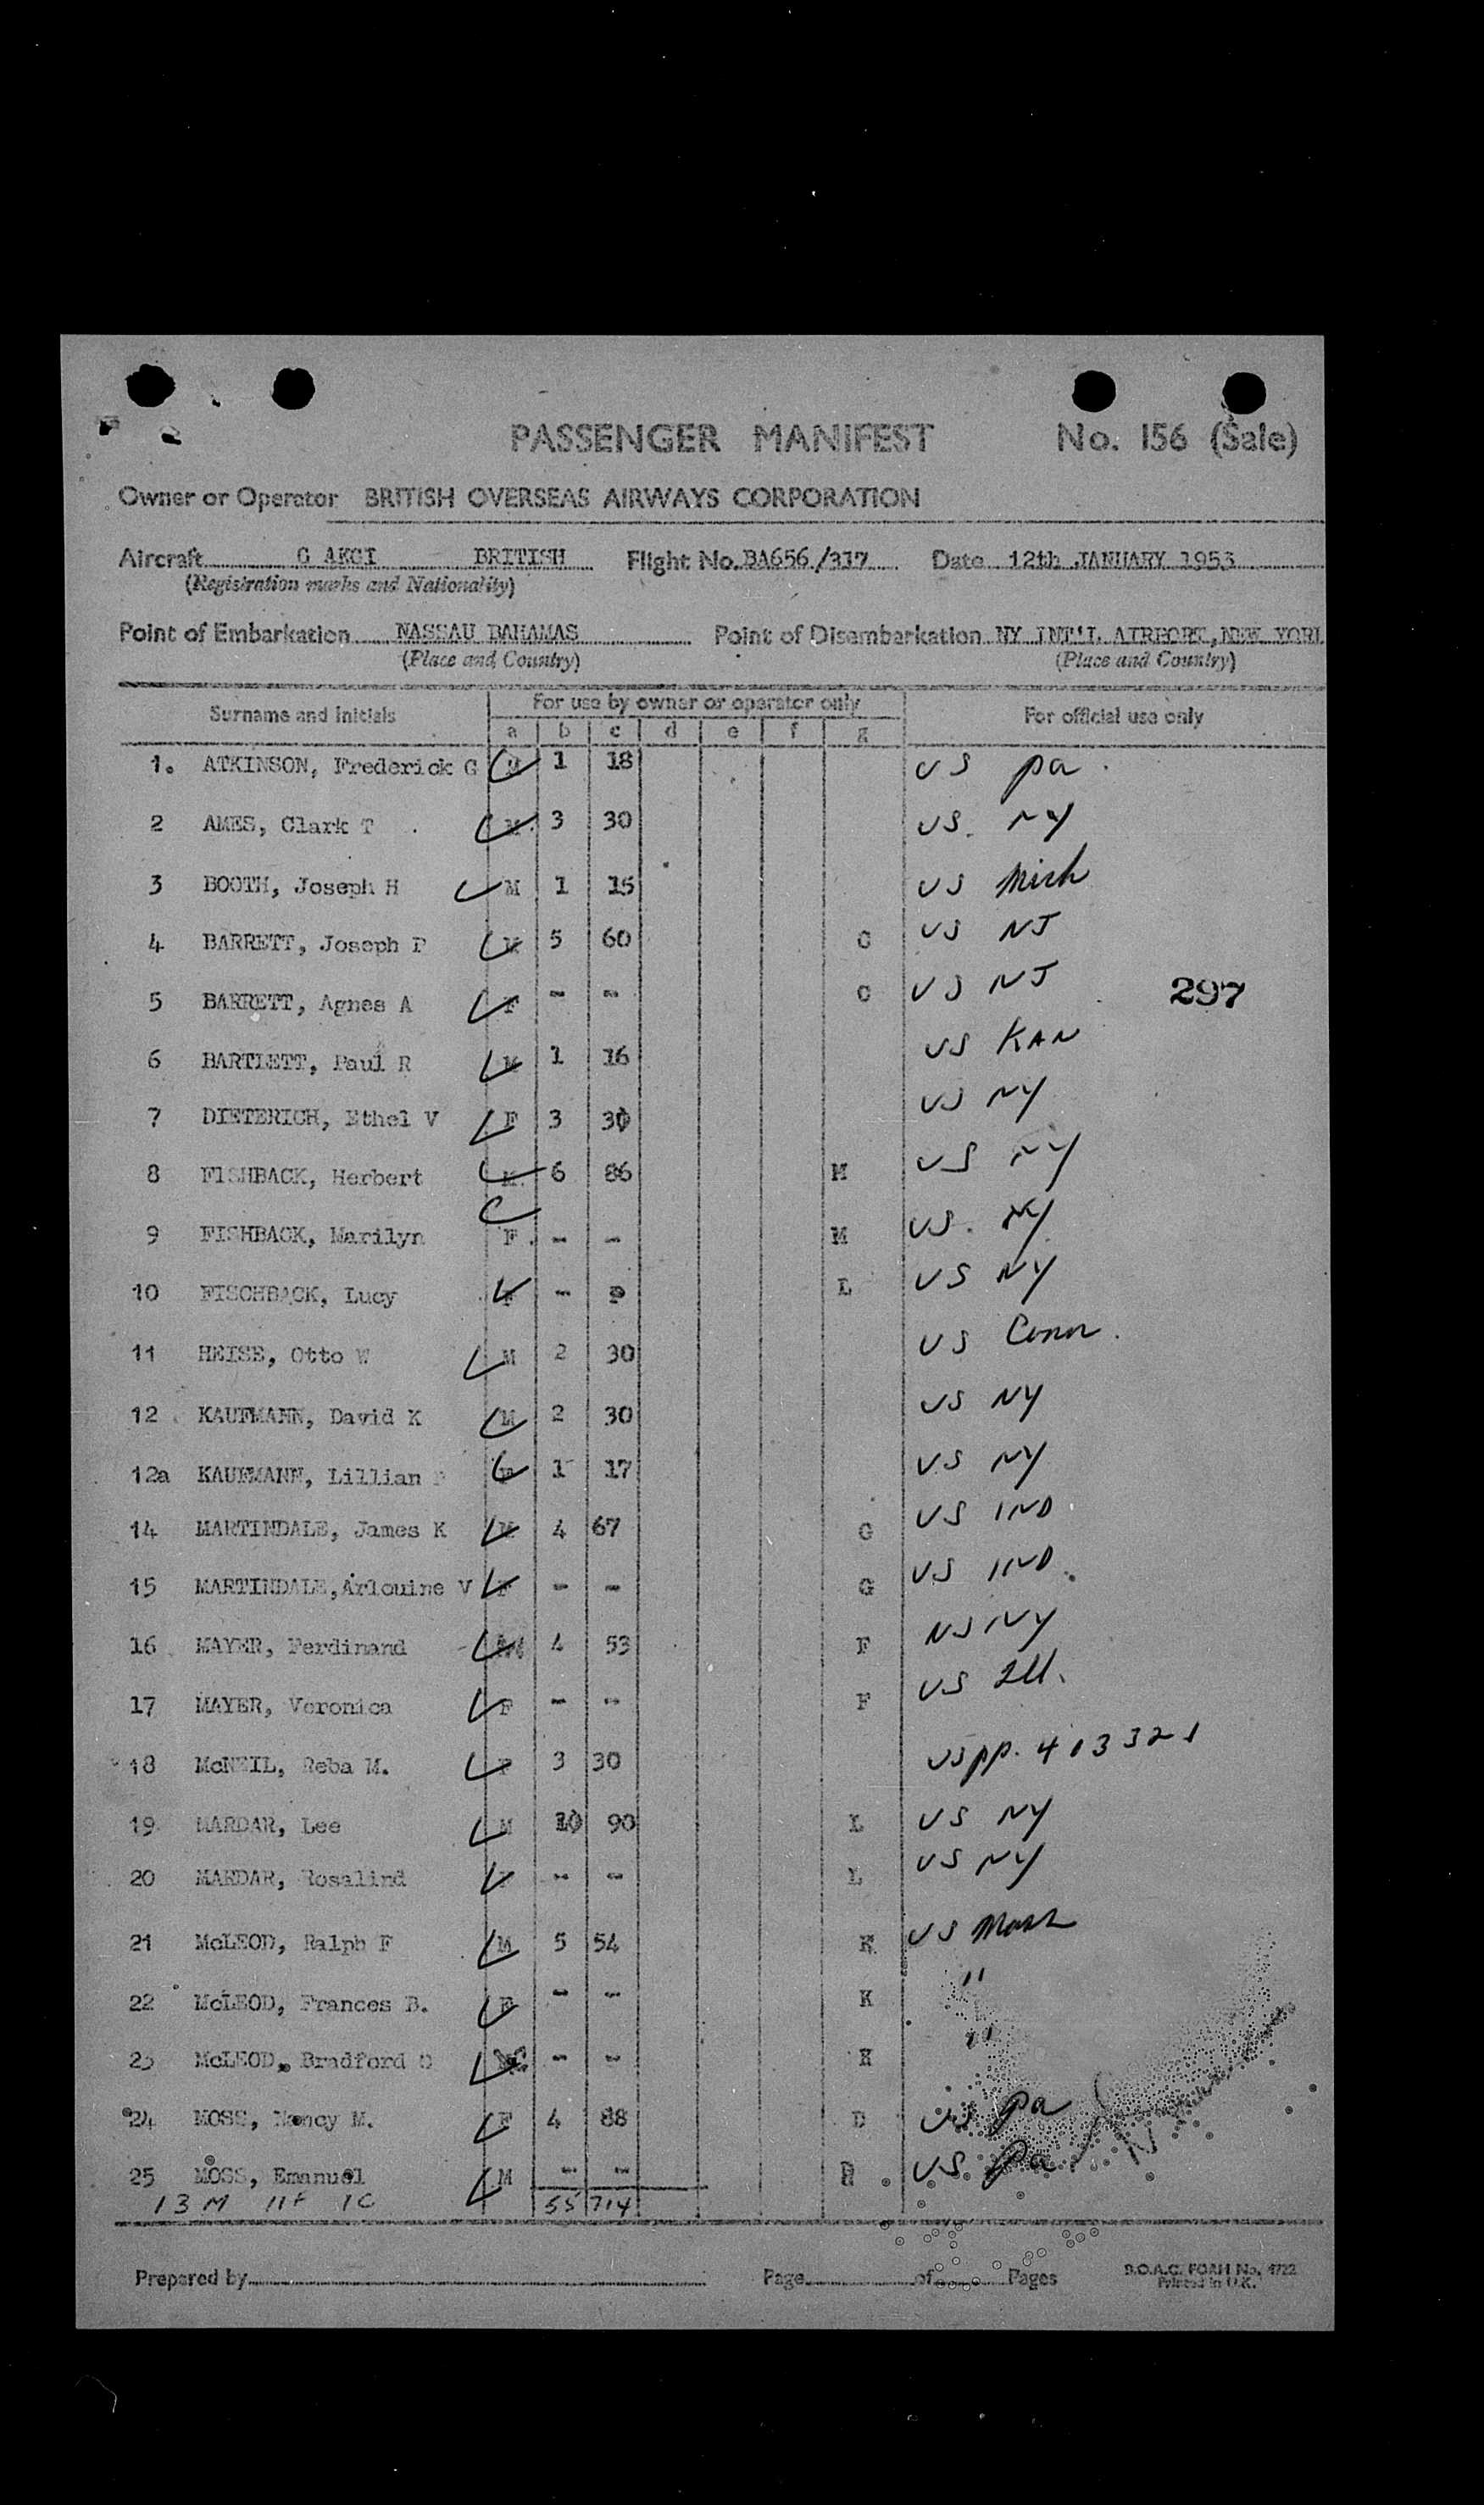 PASSENGER MANIFEST No. 156 (Sale)
Owner or Operator BRITISH OVERSEAS AIRWAYS CORPORATION
Aircraft G AKGI BRITISH Flight No. BA656/317 Date 12th JANUARY 1953
(Registration marks and Nationality)
Point of Embarkation NASSAU BAHAMAS Point of Disembarkation NY INT'L AIRPORT, NEW YORK
(Place and Country) (Place and Country)
Surname and Initials For use by owner or operator only For official use only
a b c d e f g
1. ATKINSON, Frederick G M 1 18 US Pa.
2 AMES, Clark T M 3 30 US. NY
3 BOOTH, Joseph H M 1 15 US Mich
4 BARRETT, Joseph P M 5 60 C US NJ
5 BARRETT, Agnes A F - - C US NJ 297
6 BARTLETT, Paul R M 1 16 US KAN
7 DIETERICH, Ethel V F 3 30 US NY
8 FISHBACK, Herbert M 6 86 M US NY
9 FISHBACK, Marilyn F - - M US. NY
10 FISCHBACK, Lucy F - L US NY
11 HEISE, Otto W M 2 30 US Conn.
12 KAUFMANN, David K M 2 30 US NY
12a KAUFMANN, Lillian F 1 17 US NY
14 MARTINDALE, James K M 4 67 G US IND
15 MARTINDALE, Arlouine V F - - G US IND.
16 MAYER, Ferdinand M 4 53 F US NY
17 MAYER, Veronica F - - F US Ill.
18 McNEIL, Reba M. F 3 30 US pp. 413321
19 MARDAR, Lee M 10 90 L US NY
20 MARDAR, Rosalind F - - L US NY
21 McLEOD, Ralph F M 5 54 K US Mass
22 McLEOD, Frances B. F - - K "
23 McLEOD, Bradford - - K "
24 MOSS, Nancy M. F 4 88 D US Pa
25 MOSS, Emanuel M - - D US Pa
13 M 11 F 1 C 55 714
Prepared by Page of Pages B.O.A.C. FORM No. 4722
Printed in U.K.